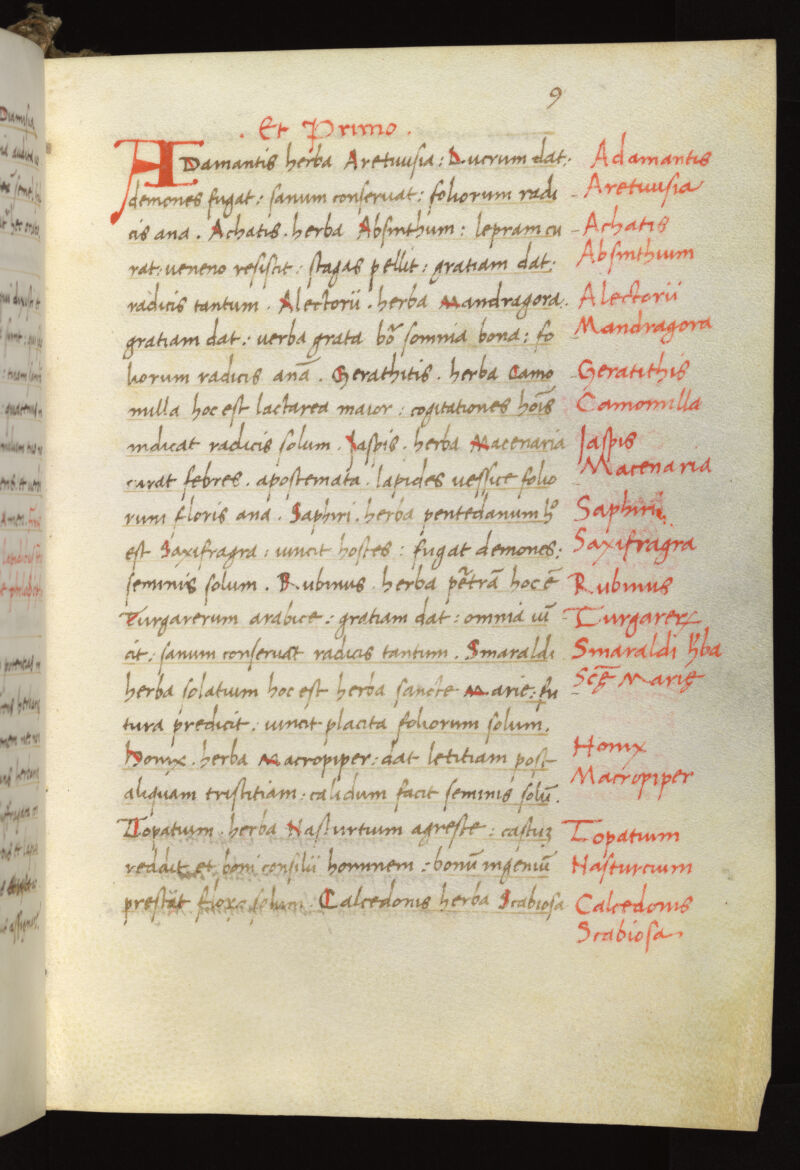 9
. Et Primo .
ADamantis herba Aretuusia : Lucrum dat :
demones fugat : sanum conseruat : foliorum radi
cis ana . Achatis . herba Absinthum : lepram cu
rat : ueneno resistit : stagas pellit : gratiam dat :
radicis tantum . Alectorii . herba Mandragora .
gratiam dat : uerba grata somnia bona : fo
liorum radicis anā . Gerathitis . herba Camo
milla hoc est lactarea maior : cogitationes hoīs
indicat radicis solum . Jaspis . herba Macenaria
curat febres . apostemata . lapides uessice folio
rum floris ana . Saphiri . herba pentedanum
est Saxifragra : uincit hostes : fugat demones :
seminis solum . Rubinus . herba hoc ē
Turgarerum arabice : gratiam dat : omnia uī
cit : sanum conseruat radicis tantum . Smaraldi
herba solatium hoc est herba sancte Marie : fu
tura predicit . uincit placita foliorum solum .
Honix . herba Macropiper : dat letitiam post
aliquam tristitiam : calidum facit seminis solū .
Topatium . herba Nasturtium agreste : castuz
reddit et boni consilii hominem : bonū ingeniū
prestat solum . Calcedonis herba Scabiosa
Adamantis
Aretuusia
Achatis
Absinthium
Alectorii
Mandragora
Geratithis
Camomilla
Jaspis
Macenaria
Saphiri
Saxifragra
Rubinus
Turgarer
Smaraldi hba
Scē Marię
Honix
Macropiper
Topatium
Nasturcium
Calcedonis
Scabiosa